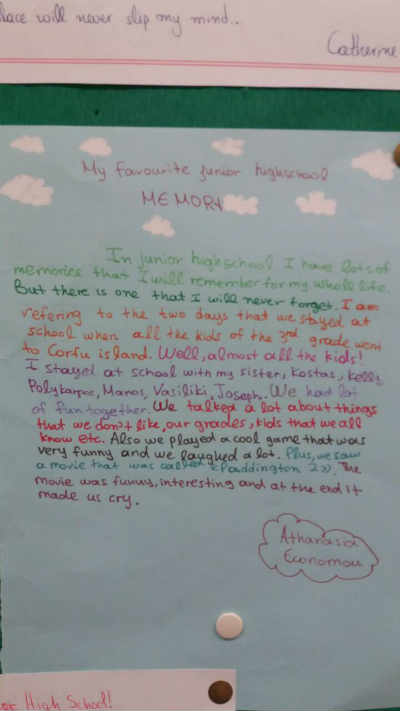 lace will never slip my mind..
Catherine
My favourite junior highschool
MEMORY
In junior highschool I have lots of
memories that I will remember for my whole life.
But there is one that I will never forget. I am
refering to the two days that we stayed at
school when all the kids of the 3rd grade went
to Corfu island. Well, almost all the kids!
I stayed at school with my sister, Kostas, Kelly,
Polykarpos, Manos, Vasiliki, Joseph. We had lot
of fun together. We talked a lot about things
that we don't like, our grades, kids that we all
know etc. Also we played a cool game that was
very funny and we laughed a lot. Plus, we saw
a movie that was called «Paddington 2». The
movie was funny, interesting and at the end it
made us cry.
Athanasia
Economou
High School!